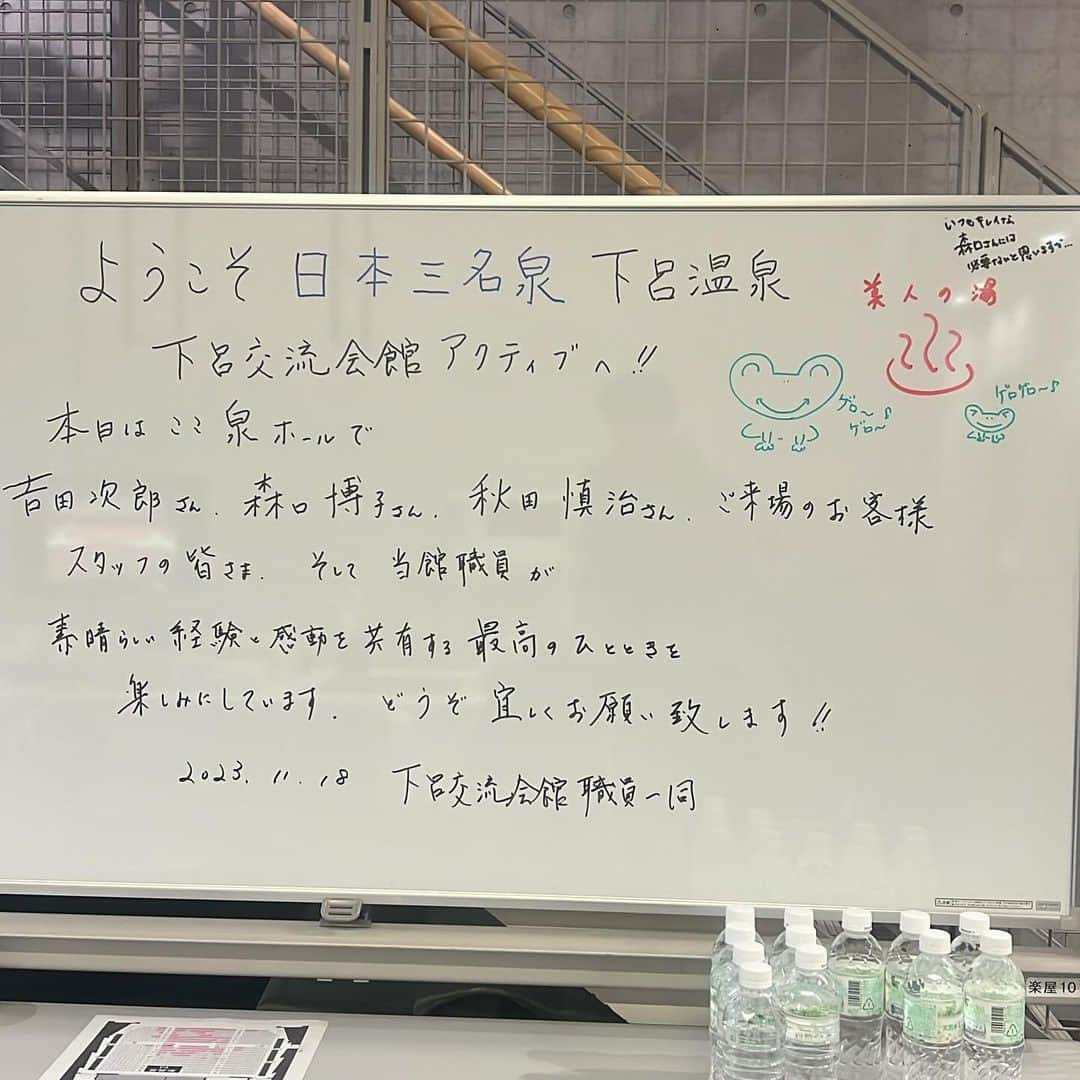 ようこそ 日本三名泉 下呂温泉
下呂交流会館 アクティブへ!!
いつもキレイな
森口さんには
必要ないと思いますが…
美人の湯
ゲロ〜♪
ゲロ〜
ゲロゲロ〜♪
本日は ここ 泉ホールで
吉田次郎さん、森口博子さん、秋田慎治さん、ご来場のお客様
スタッフの皆さま、そして 当館職員が
素晴らしい経験と感動を共有する最高のひとときを
楽しみにしています。どうぞ宜しくお願い致します!!
2023.11.18 下呂交流会館 職員一同
楽屋10